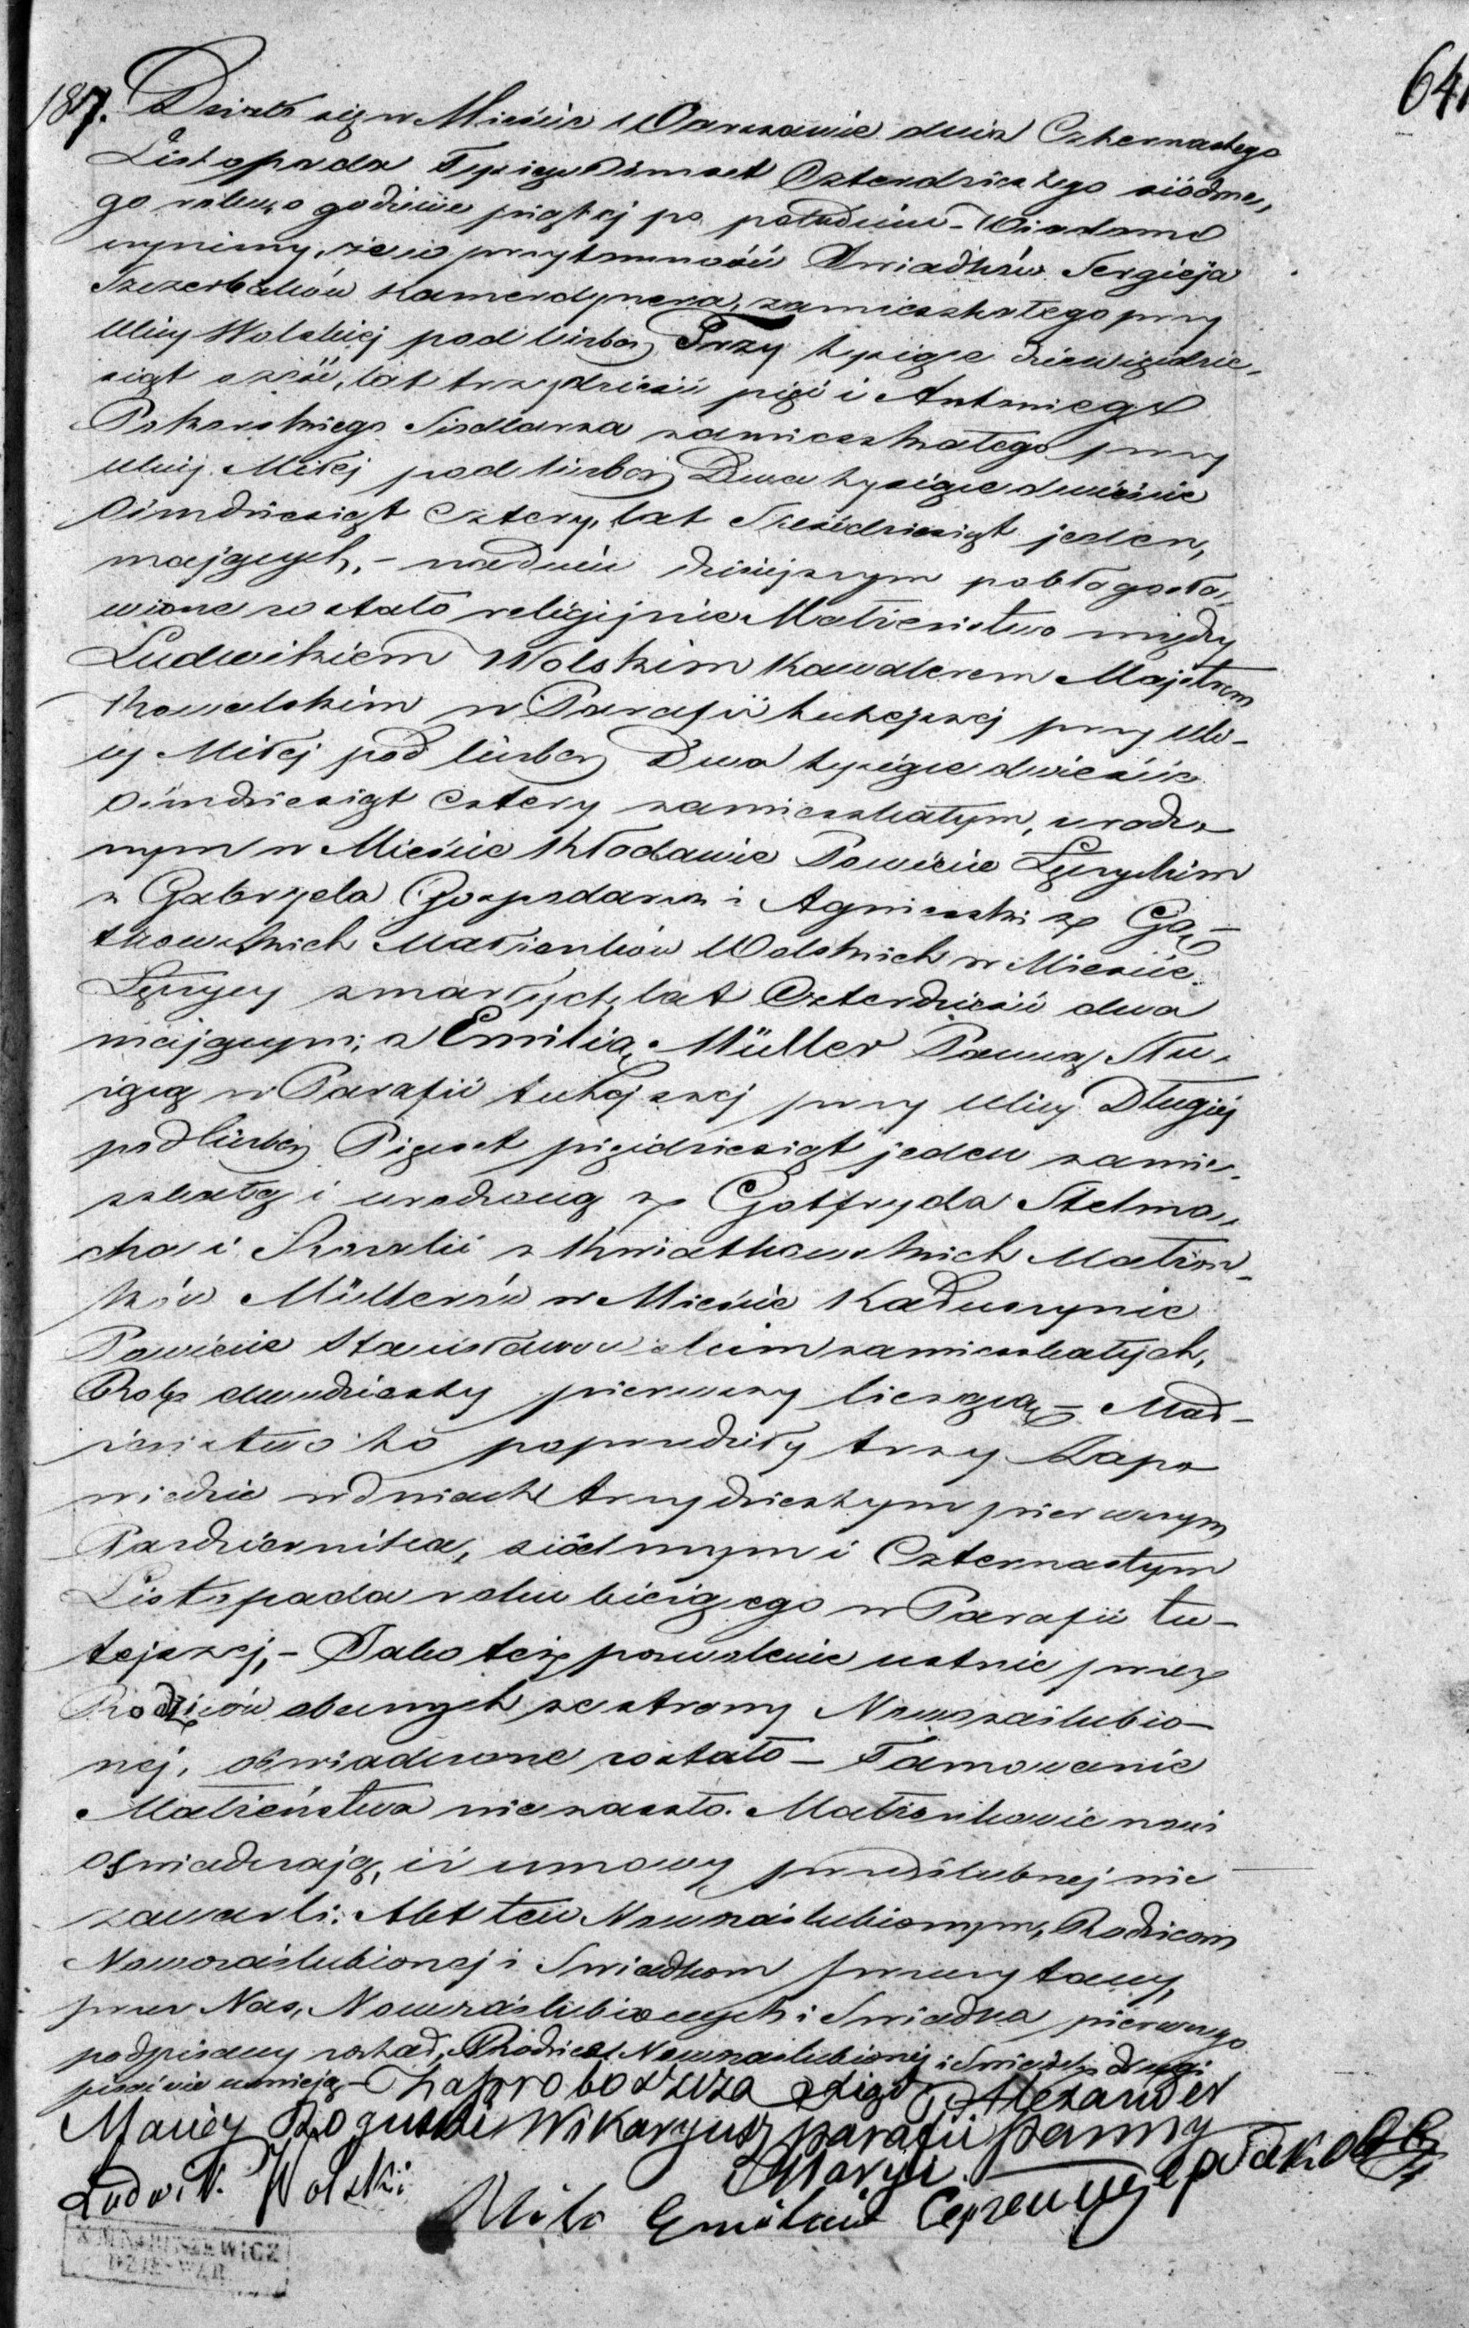 641
187. Działo się w Mieście Warszawie dnia Czternastego
Listopada Tysiąc Ośmset Czterdziestego siódme„
go roku, o godzinie piątej po południu – Wiadomo
czynimy, że w przytomności Świadków Sergieja
Szczerbaków Kamerdynera, zamieszkałego przy
Ulicy Wolskiej pod liczbą Trzy tysiące dziewięćdzie„
siąt sześć, lat trzydzieści pięć i Antoniego
Siodlarza zamieszkałego przy
ulicy Miłej pod liczbą Dwa tysiące dwieście
Ośmdziesiąt Cztery, lat Sześćdziesiąt jeden,
mających, – na dniu dzisiejszym pobłogosła„
wione zostało religijnie Małżeństwo między
Ludwikiem Wolskim Kawalerem Majstrem
Kowalskim w Parafii tutejszej przy Uli–
cy Miłej pod liczbą Dwa tysiące dwieście
Ośmdziesiąt Cztery zamieszkałym, urodzo
nym w Mieście Kłodawie Powiecie Łęczyckim
z Gabryela Gospodarza i Agnieszki z
Małżonków Wolskich w Mieście
Łęczycy zmarłych, lat Czterdzieści dwa
mającym; a Emilią Müller Panną Słu„
żącą w Parafii tutejszej przy Ulicy Długiej
pod liczbą Pięćset pięćdziesiąt jeden zamie„
szkałą i urodzoną z Gotfryda Stelma„
cha i Rozalii z Kwiatkowskich Małżon„
ków Müllerów w Mieście Kałuszynie
Powiecie Stanisławowskim zamieszkałych,
Rok dwudziesty pierwszy liczącą – Mał–
żeństwo to poprzedziły trzy Zapo
wiedzie w dniach trzydziestym pierwszym
Października, siódmym i Czternastym
Listopada roku bieżącego w Parafii tu–
tejszej, – Jako też pozwolenie ustnie przez
Rodziców obecnych ze strony Nowozaślubio–
nej, oświadczone zostało – Tamowanie
Małżeństwa nie zaszło. Małżonkowie nowi
oświadczają, iż umowy przedślubnej nie
zawarli. Akt ten Nowozaślubionym, Rodzicom
Nowozaślubionej i Świadkom przeczytany,
przez Nas, Nowozaślubionych i Świadka pierwszego
podpisany został, Rodzice Nowozaślubionej i Świadek drugi
pisać nie umieją –
Alexander
Maciey Rogulski Wikaryusz parafii panny
Maryi
Ludwik Wolski